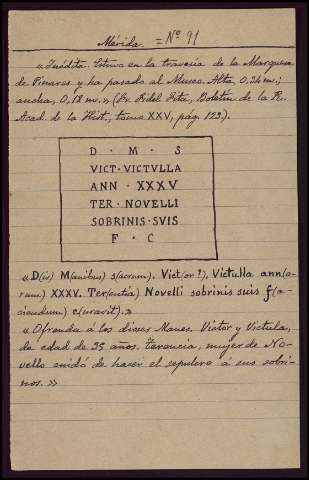 Mérida. = Nº 91
«Inédita. Estuvo en la travesía de la Marquesa
de Pinares y ha pasado al Museo. Alta, 0,34 m.;
ancha, 0,18 m.» (Sr. Fidel Fita, Boletín de la R.
Acad. de la Hist., tomo XXV, pág. 123).
D · M · S
VICT · VICTVLLA
ANN · XXXV
TER · NOVELLI
SOBRINIS · SVIS
F · C
«D(is) M(anibus) s(acrum). Vict(or?), Victulla ann(o-
rum) XXXV. Ter(entia) Novelli sobrinis suis f(a-
ciendum) c(uravit).»
«Ofrenda á los dioses Manes. Víctor y Victula,
de edad de 35 años. Terencia, mujer de No-
vello cuidó de hacer el sepulcro á sus sobri-
nos.»